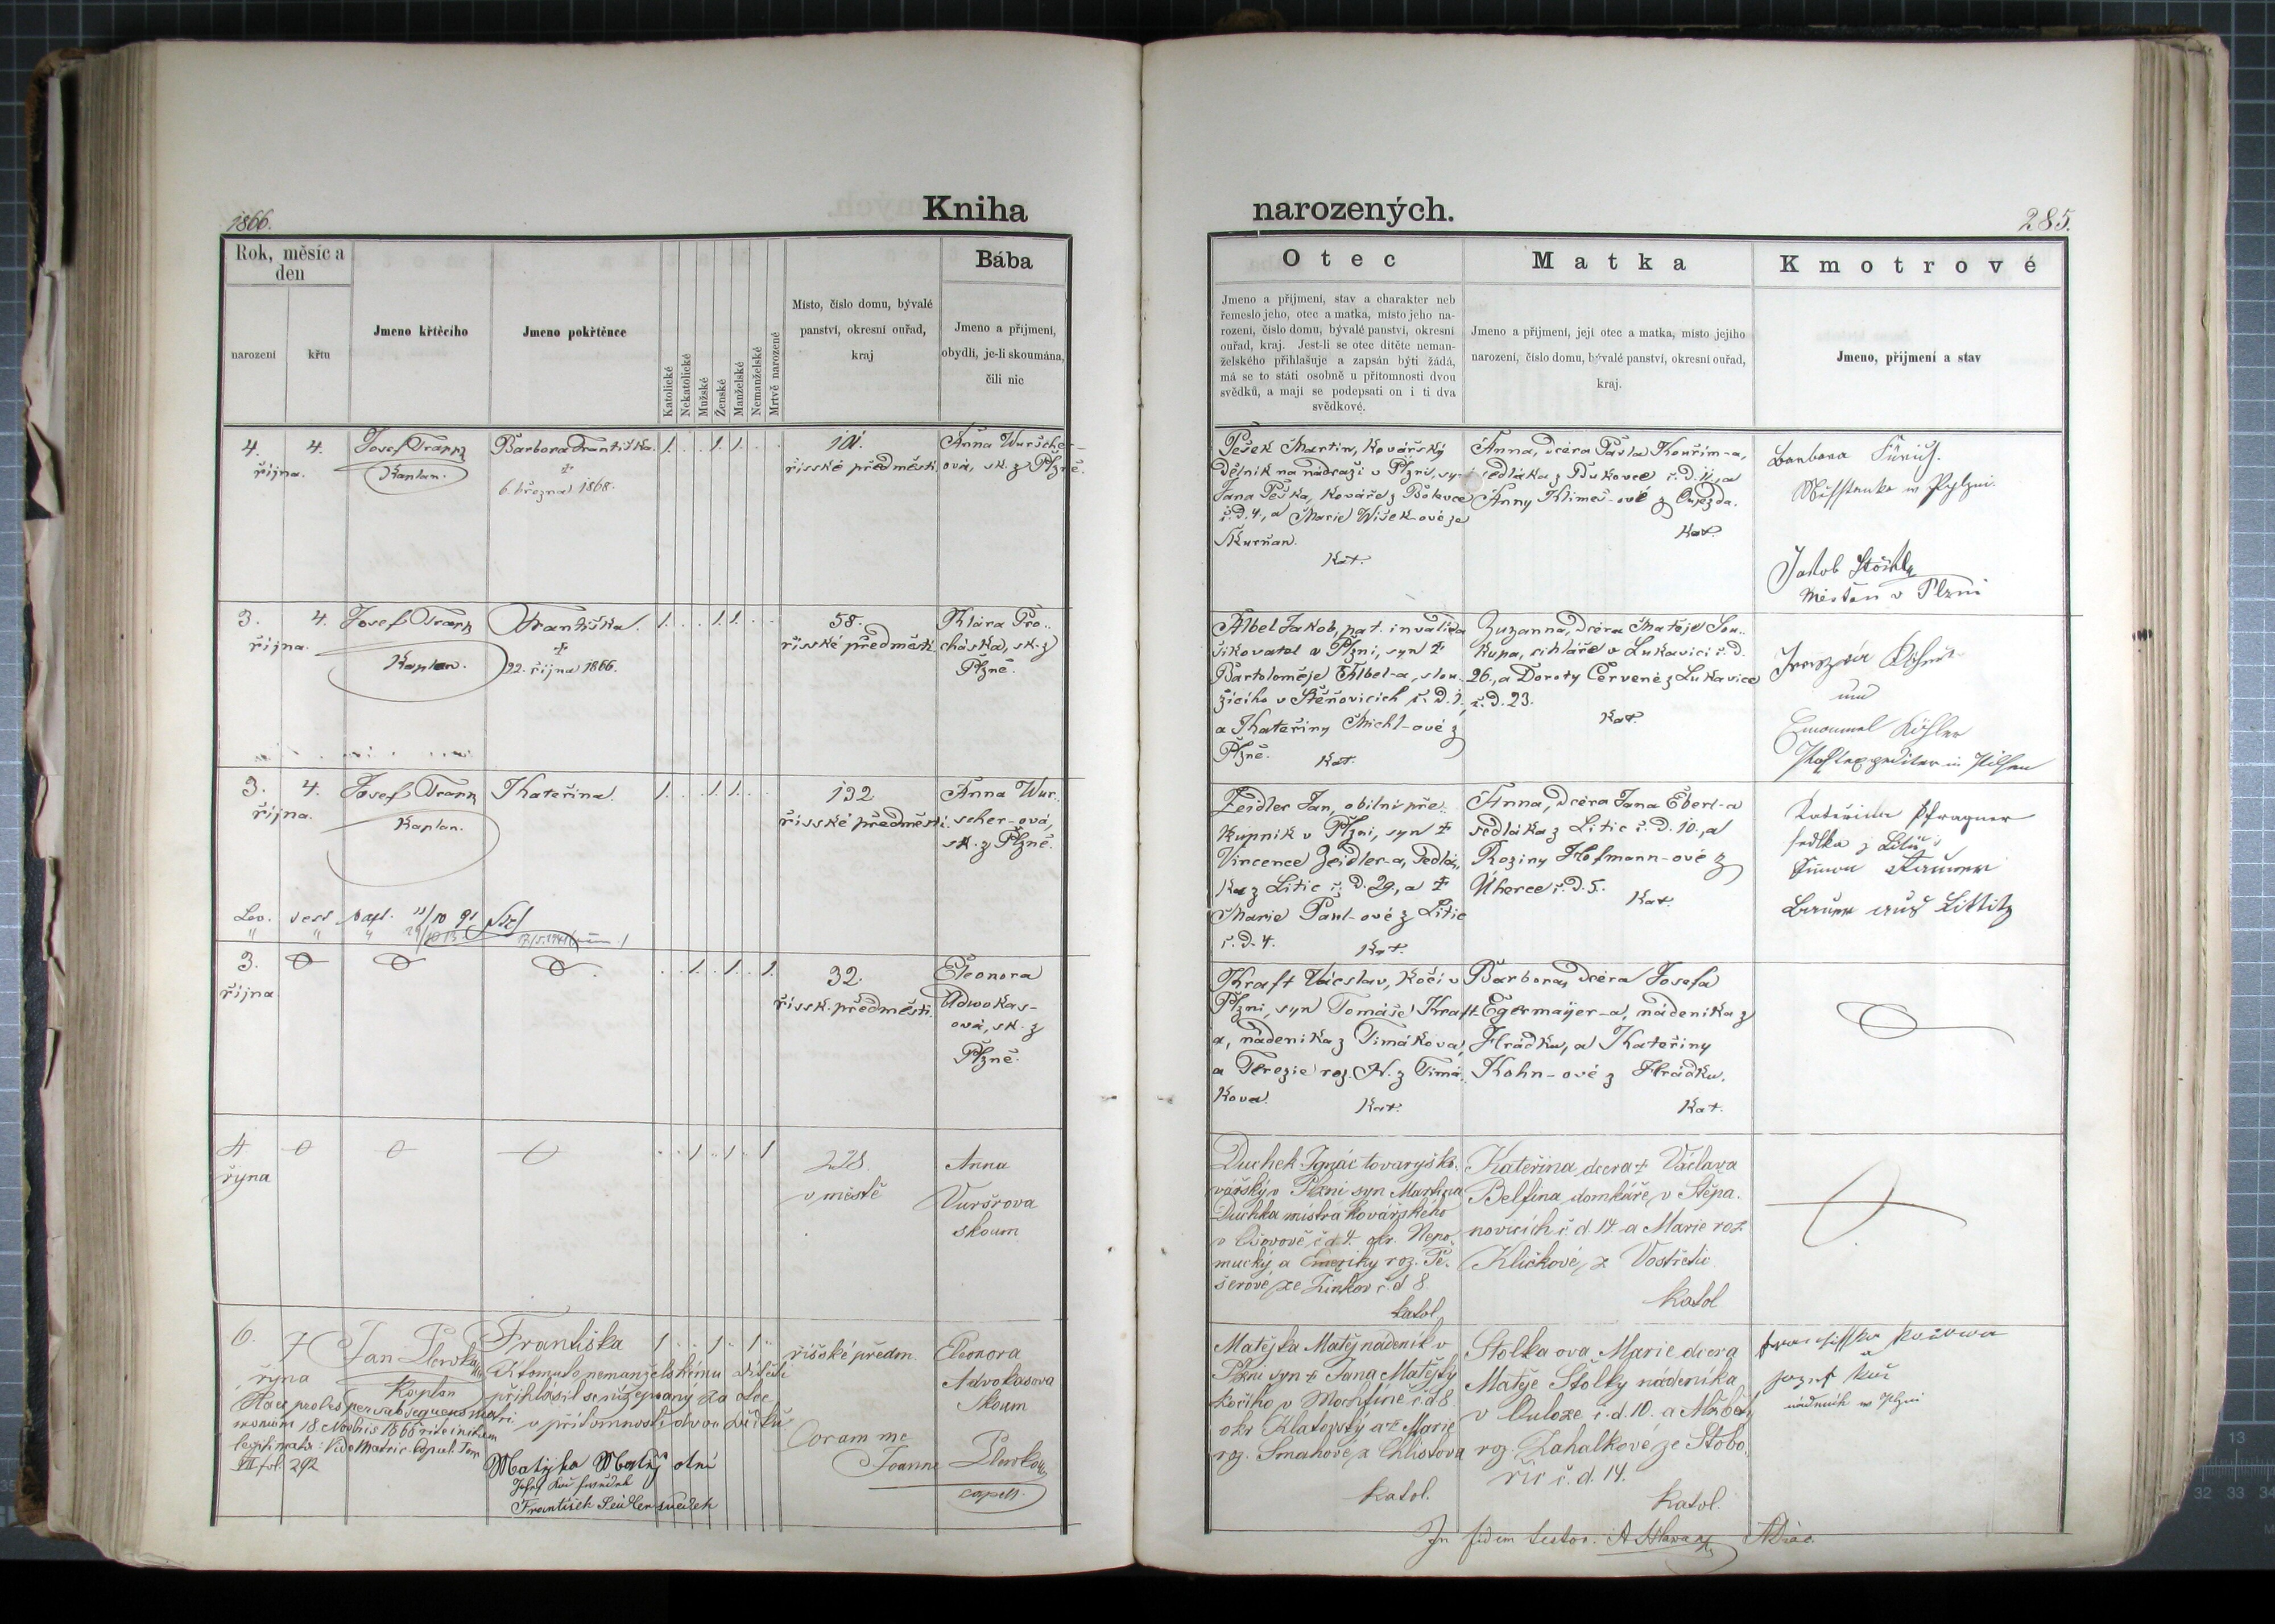 1866.
Kniha
Rok, měsíc a
den
narození
křtu
Jmeno křtěcího
Jmeno pokřtěnce
Katolické
Nekatolické
Mužské
Ženské
Manželské
Nemanželské
Mrtvě narozené
Místo, číslo domu, bývalé
panství, okresní ouřad,
kraj
Bába
Jmeno a příjmení,
obydlí, je-li skoumána,
čili nic
4. 4.
října.
Josef Trapp
Kaplan.
Barbora Františka.
6. března 1868.
1. . . 1. 1. . .
101.
říšské předměstí.
Anna Wurscher-
ová, sk. z Plzně.
3. 4.
října.
Josef Trapp
Kaplan.
Františka.
†
22. října 1866.
1. . . 1. 1. . .
58.
říšské předměstí.
Klára Pro-
cháska, sk. z
Plzně.
3. 4.
října.
Josef Trapp
Kaplan.
Kateřina.
1. . . 1. 1. . .
132.
říšské předměstí.
Anna Wur-
scher-ová,
sk. z Plzně.
3.
října
. . 1. . 1. . 1.
32.
říssk. předměstí.
Eleonora
Adwokas-
ová, sk. z
Plzně.
4
října
. . 1 . 1 . 1
228.
v městě
Anna
Vuršrova
skoum
6. 7
října
Jan
Kaplan
Františka
1 . . 1 . 1 .
K tomuto nemanželskému dítěti
přihlásil se níže psaný za otce
v přítomnosti dvou svědků
Haec proles per subsequens matri
monium 18 Novbris 1866 rite initum
legitimata: Vide Matric. Copul. Tom
VII fol. 292
Matějka Matěj otec
František Seidler svědek
říšské předm.
Eleonora
Advokasova
skoum
Coram me
Joanne
capell.
narozených.
285.
Otec
Jmeno a příjmení, stav a charakter neb
řemeslo jeho, otec a matka, místo jeho na-
rození, číslo domu, bývalé panství, okresní
ouřad, kraj. Jest-li se otec dítěte neman-
želského přihlašuje a zapsán býti žádá,
má se to státi osobně u přítomnosti dvou
svědků, a mají se podepsati on i ti dva
svědkové.
Matka
Jmeno a příjmení, její otec a matka, místo jejího
narození, číslo domu, bývalé panství, okresní ouřad,
kraj.
Kmotrové
Jmeno, příjmení a stav
Pešek Martin, kovářský
dělník na nádraží v Plzni, syn
Jana Peška, kováře z Bolevce
č. d. 4., a Marie Wišek-ové ze
Skurňan.
Kat.
Anna, dcera Pavla Kouřim-a,
sedláka z Bukovce č. d. 11., a
Anny Klimeš-ové z Oujezda.
Kat.
Barbora
Jakob
Měštan v Plzni
Albel Jakob, pat. invalida
šikovatel v Plzni, syn †
Bartoloměje Albel-a, slou-
žícího v Štěňovicích č. d. 1.,
a Kateřiny Michl-ové z
Plzně. Kat.
Zuzanna, dcera Matěje Sou-
kupa, cihláře v Lukavici č. d.
26., a Doroty Červené z Lukavice
č. d. 23.
Kat.
und
Emanuel Köhler
Postexpeditor in Pilsen
Zeidler Jan, obilní pře-
kupník v Plzni, syn †
Vincence Zeidler-a, sedlá-
ka z Litic č. d. 29., a †
Marie Paul-ové z Litic
č. d. 4. Kat.
Anna, dcera Jana Eberl-a
sedláka z Litic č. d. 10., a
Roziny Hofmann-ové z
Úherce č. d. 5.
Kat.
Kateřina Pfragner
Bauer aus Littitz
Kraft Václav, kočí v
Plzni, syn Tomáše Kraft-
a, nádeníka z Timákova,
a Terezie roz. N. z Timá-
kova. Kat.
Barbora, dcera Josefa
Egermayer-a, nádeníka z
Hrádku, a Kateřiny
Kohn-ové z Hrádku.
Kat.
Duchek Ignác tovaryš ko-
vářský v Plzni syn Martina
Duchka mistra kovářského
č. d. 4. okr. Nepo-
mucký a Emeriky roz. Te-
šerové ze Žinkov č. d 8
katol
Kateřina dcera † Václava
Belfína domkáře v Štěpa-
novicích č. d. 14 a Marie roz.
Kličkové z Vostřetic
katol
Matějka Matěj nádeník v
Plzni syn † Jana Matějky
kočího v Mochtíně č. d. 8
okr Klatovský a † Marie
roz. Smahové z Chlistova
katol.
Stolka ova Marie dcera
Matěje Štolky nádeníka
v Ouloze č. d. 10. a Alžběty
roz. Zahalkové ze Stobo-
řic č. d. 14.
katol.
nádeník w Plzni
In fidem testor.